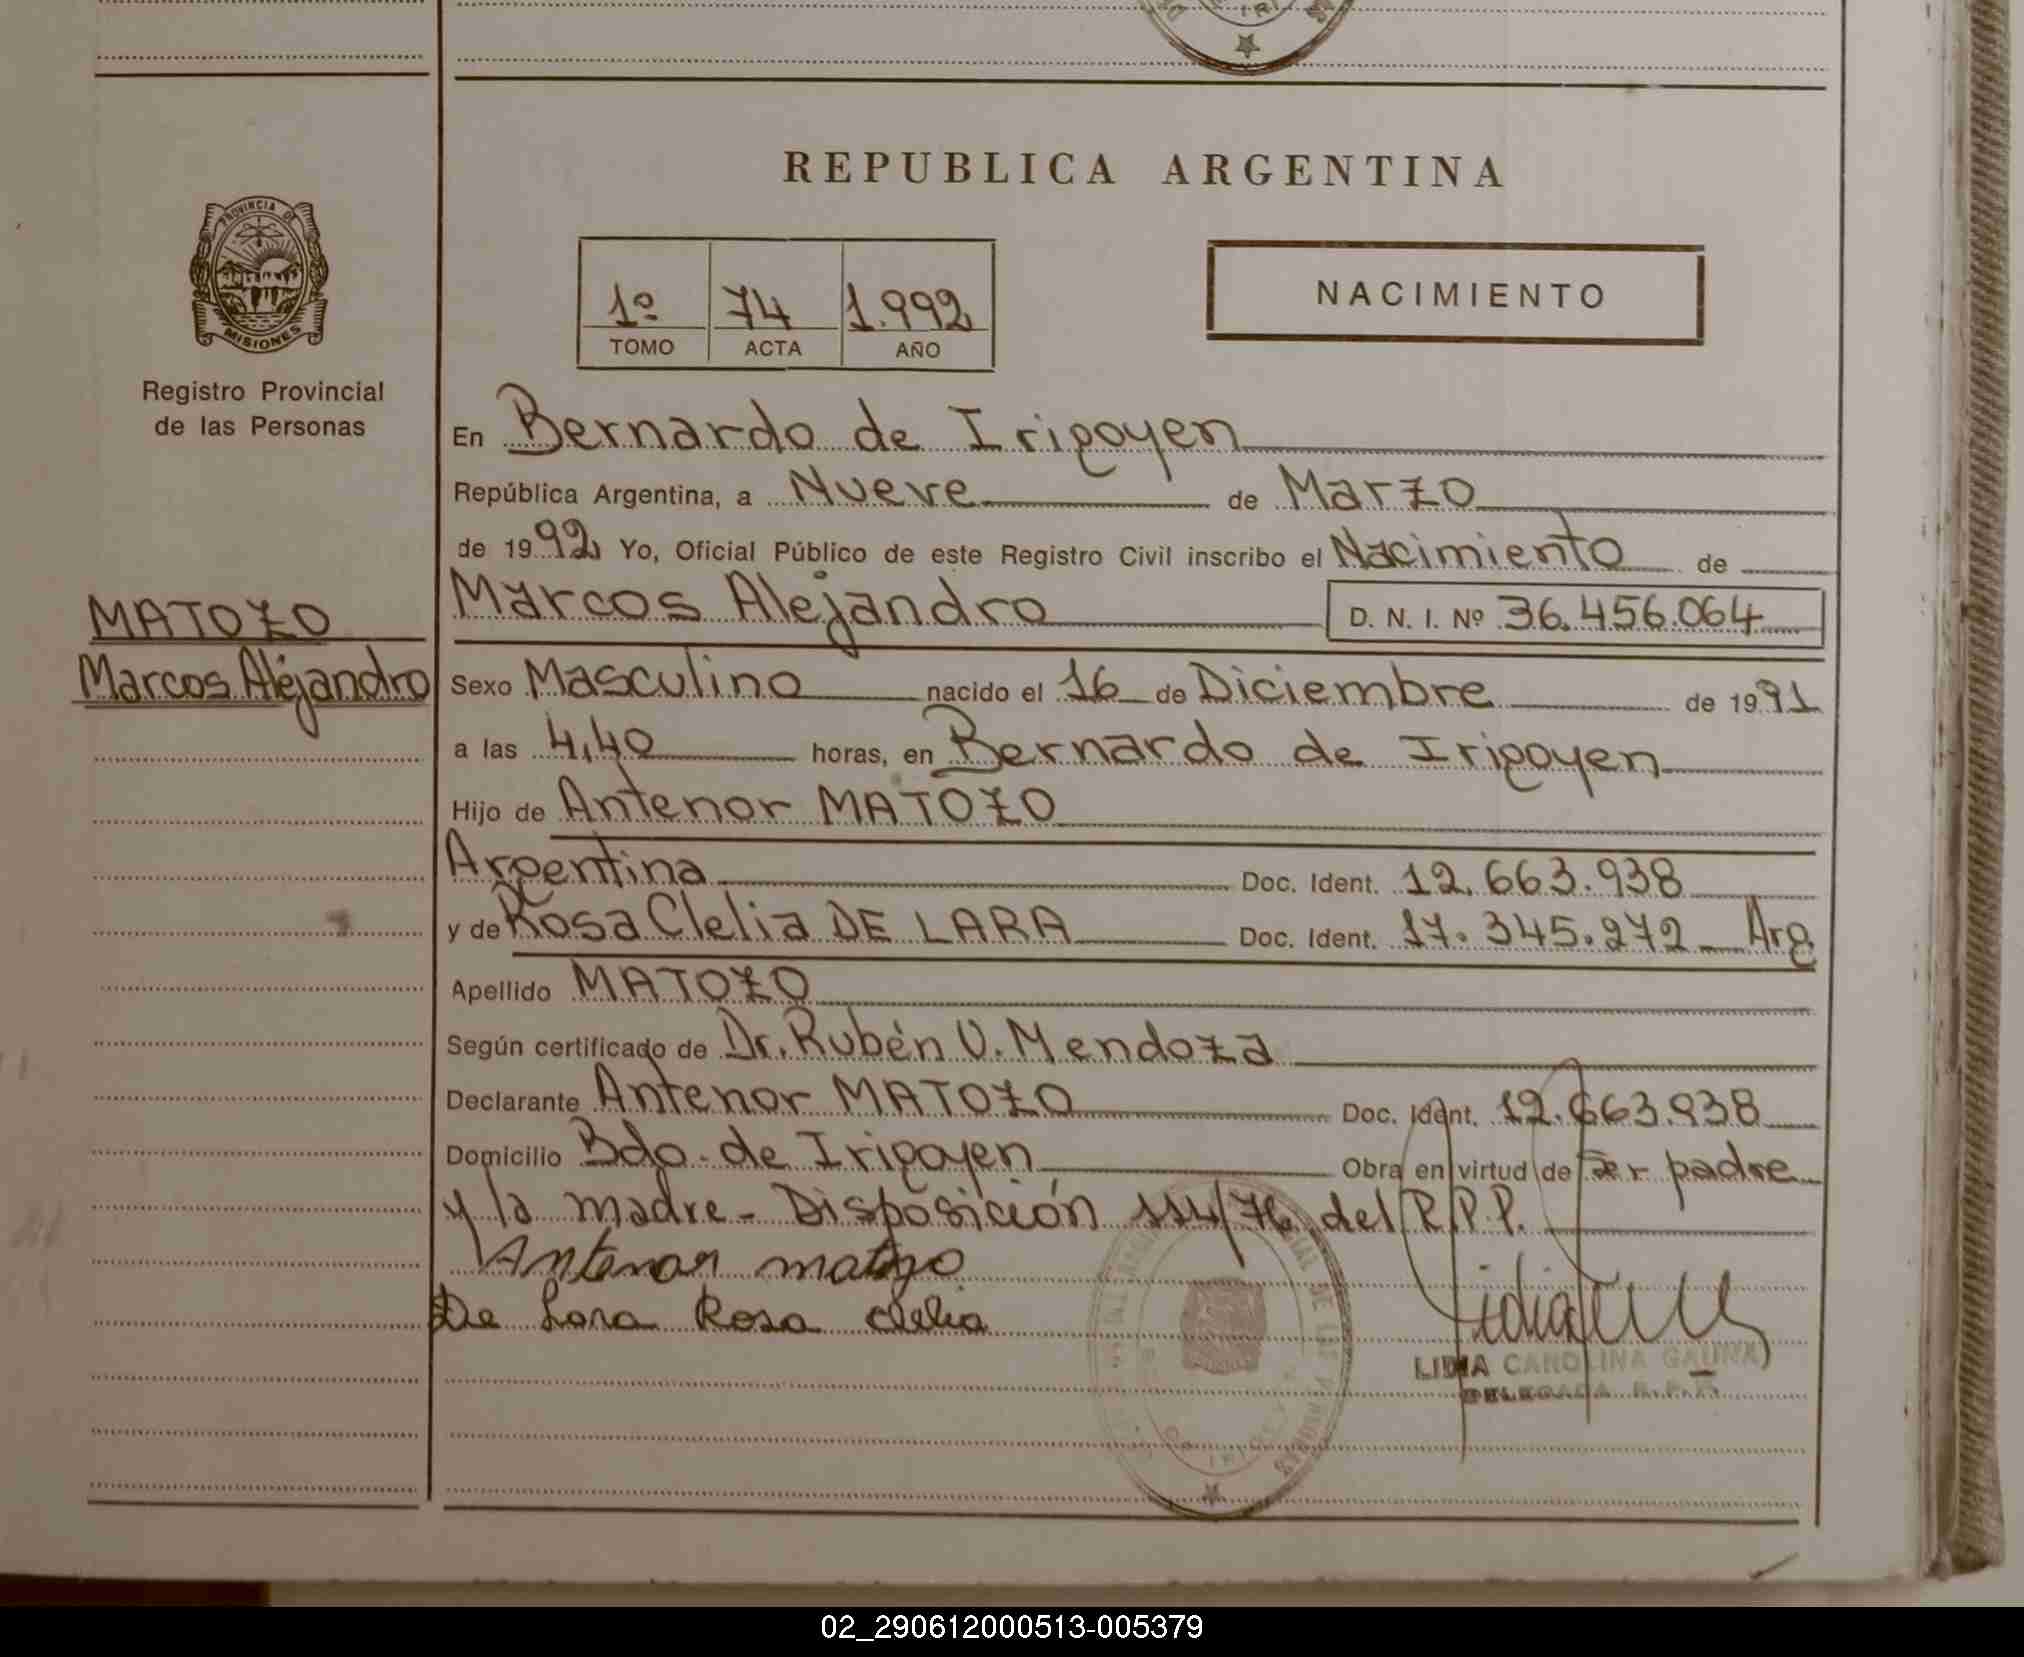 REPUBLICA ARGENTINA
PROVINCIA DE
MISIONES
Registro Provincial
de las Personas
1º 74 1.992
TOMO ACTA AÑO
NACIMIENTO
En Bernardo de Irigoyen
República Argentina, a Nueve de Marzo
de 1992 Yo, Oficial Público de este Registro Civil inscribo el Nacimiento de
Marcos Alejandro D. N. I. Nº 36.456.064
MATOZO
Marcos Alejandro
Sexo Masculino nacido el 16 de Diciembre de 1991
a las 4,40 horas, en Bernardo de Irigoyen
Hijo de Antenor MATOZO
Argentina Doc. Ident. 12.663.938
y de Rosa Clelia DE LARA Doc. Ident. 17.345.272 Arg
Apellido MATOZO
Según certificado de Dr. Rubén V. Mendoza
Declarante Antenor MATOZO Doc. Ident. 12.663.938
Domicilio Bdo. de Irigoyen Obra en virtud de ser padre
y la madre - Disposición 114/76 del R.P.P.
Antenor matozo
De Lara Rosa clelia
LIDIA CAROLINA
DELEGADA R.P.P.
02_290612000513-005379